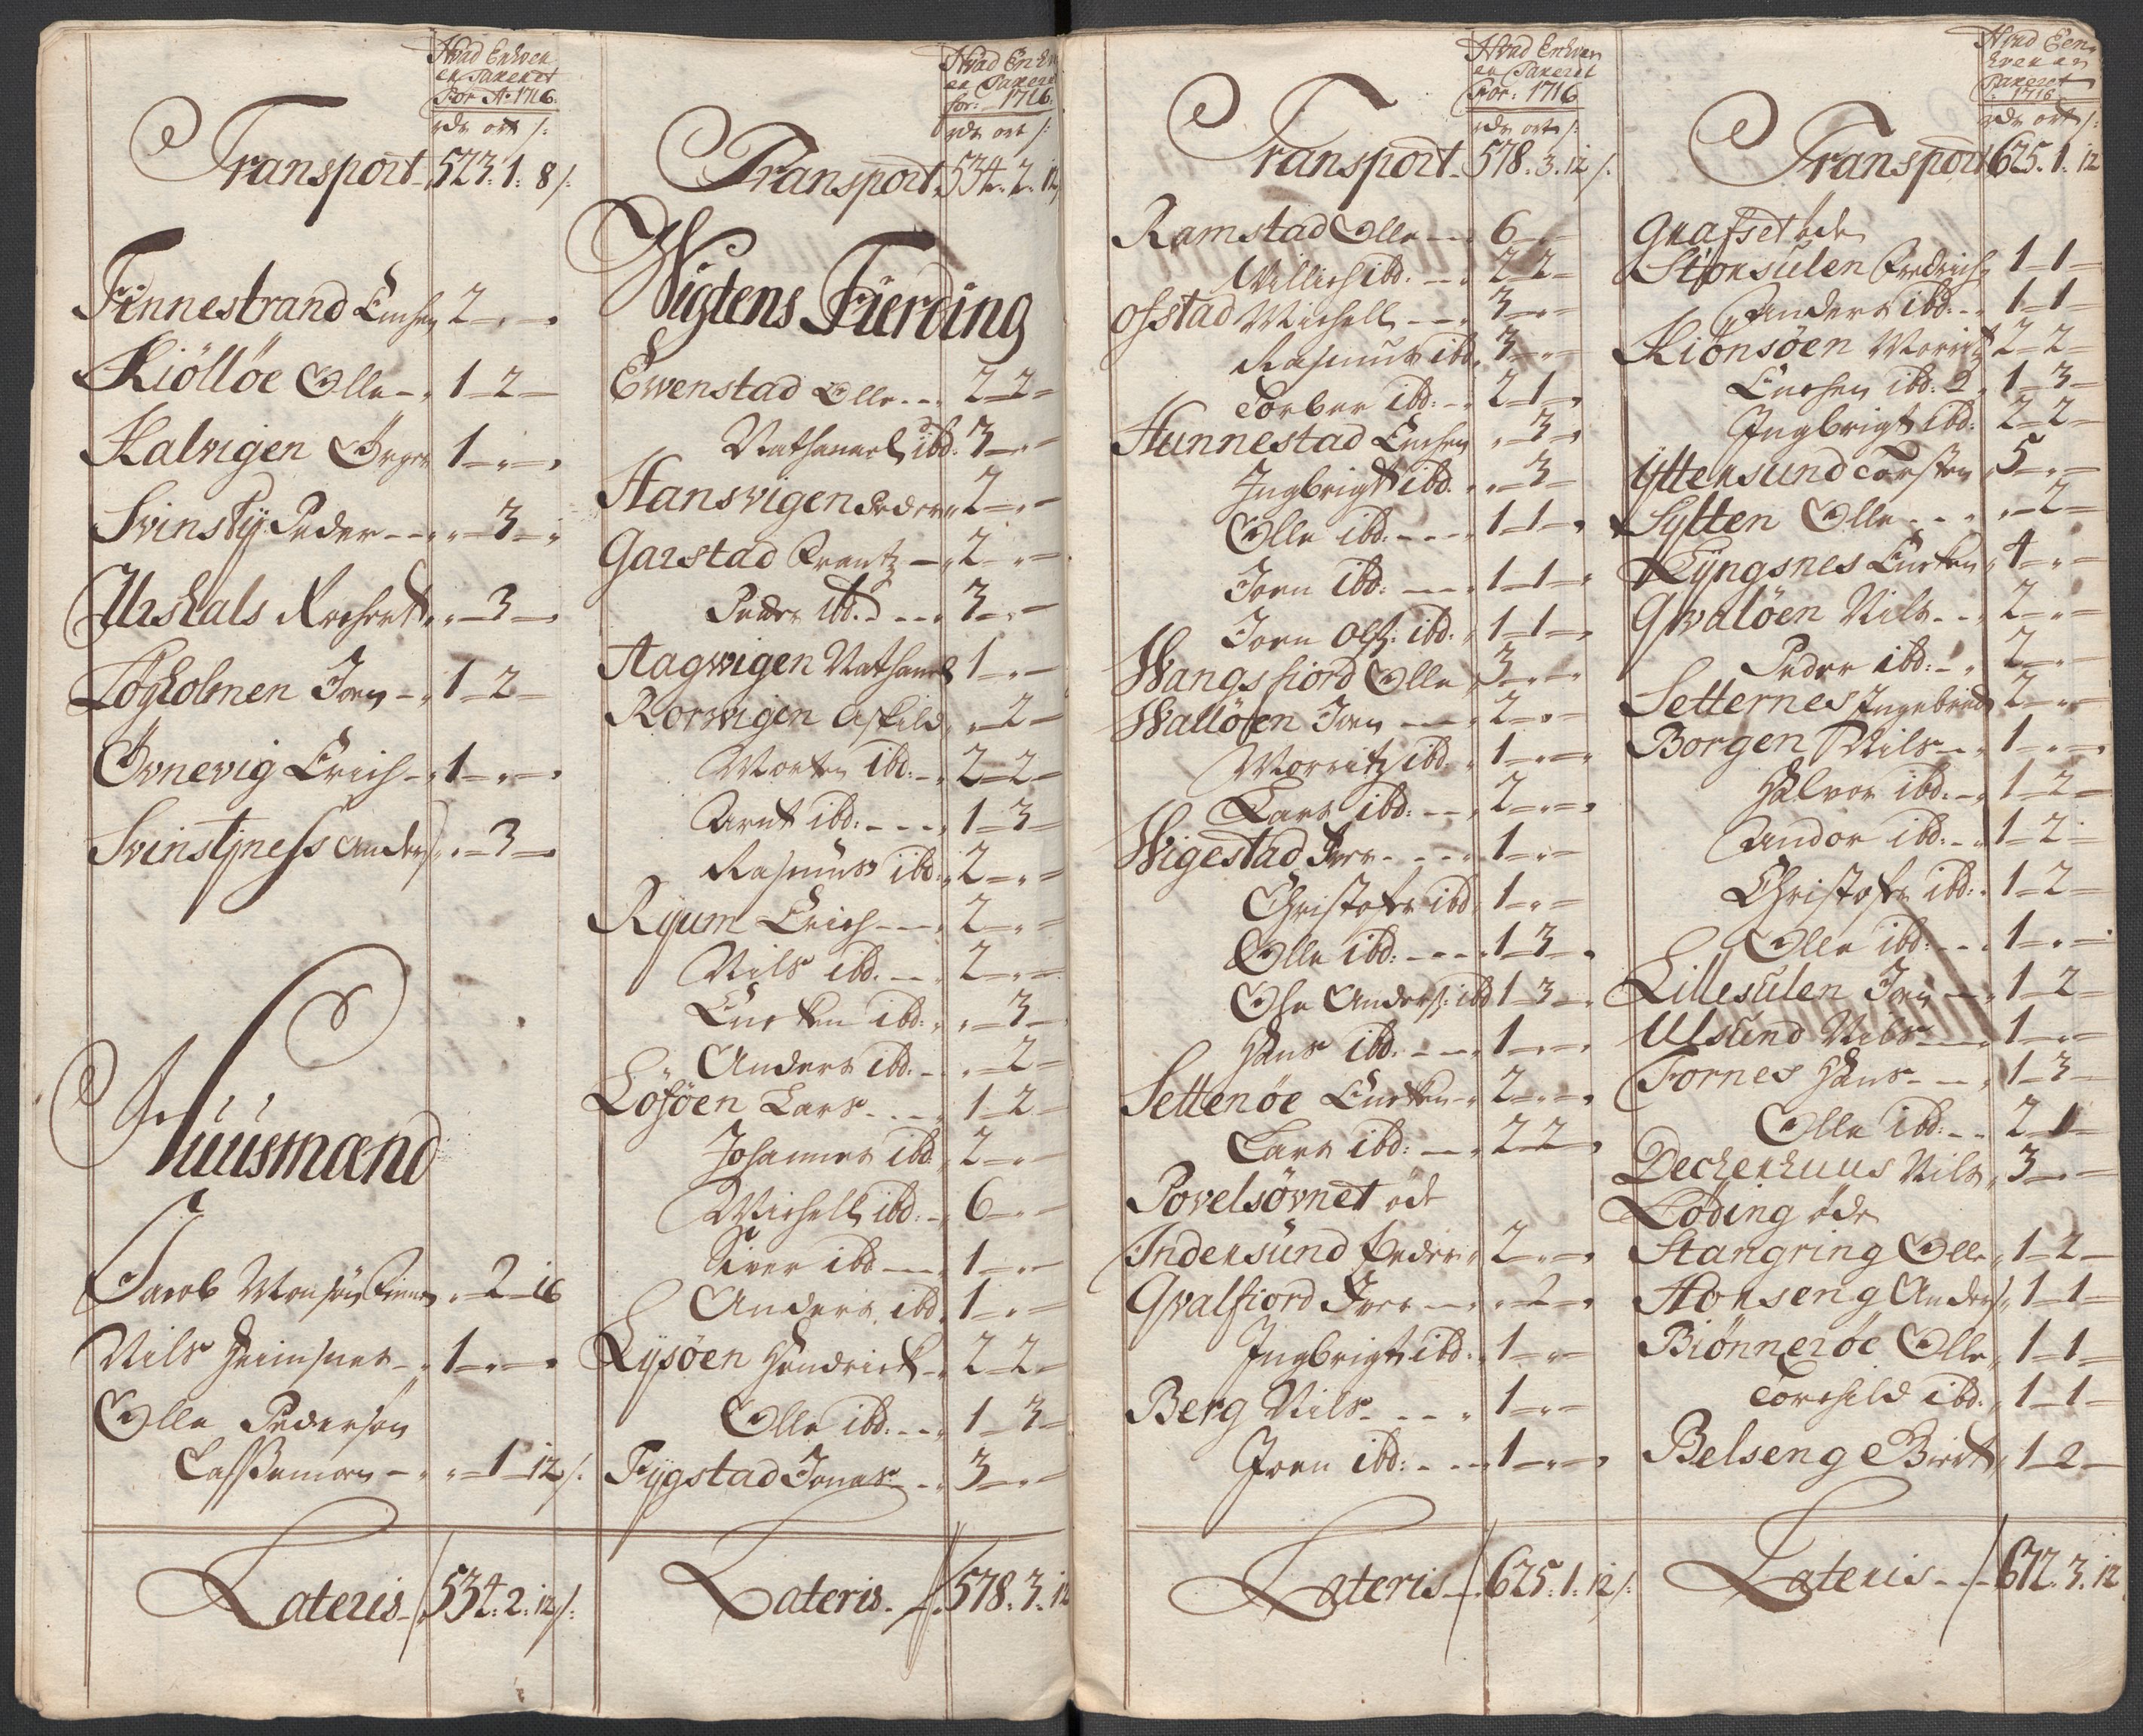 Hvad Enhver
er Taxeret
For Ao 1716.
rdr ort /:
Transport 523: 1: 8 /:
Finnestrand 2 - " - "
Kiölöe Olle - " 1 - 2 -
Kalvigen 1 - " - "
Svinsty Peder - - " " - 3 - "
Urskals " - 3 - "
Løgholmen Joen - " 1 - 2 -
Øvnevig Erich - " 1 - " - "
Svinstjness Anders " - 3 - "
Huusmænd
Jacob " - 2 - 16
Nils 1 - " - "
Olle Pedersen
" - 1 - 12 /:
Lateris - 534: 2: 12 /:
Hvad Enhver
er Taxeret
for: 1716.
rdr ort /:
Transport 534. 2. 12
Wigtens Fierding
Evenstad Olle - - 2 - 2 -
Nathanael ibd: 3 - " -
Hansvigen Peder " 2 - " -
Garstad Frantz - " 2 - " -
Peder ibd: - - 3 - " -
Aagvigen Nathanael 1 - " -
Rorvigen Askild " - 2 -
Morten ibd: - " 2 - 2 -
Arnt ibd: - - - " 1 - 3 -
Rasmus ibd: " 2 - " -
Ryum Erich - - - " 2 - " -
Nils ibd: - - " 2 - " -
ibd: " " - 3 -
Anders ibd: - " - 2 -
Löföen Lars - - " 1 - 2 -
Johannes ibd 2 - " -
Michell ibd: - " 6 - " -
Siver ibd - - " 1 - " -
Anders ibd 1 - " -
Lysöen Hendrick - " 2 - 2 -
Olle ibd: - - " 1 - 3 -
Fygstad Jonas - - " 3 - " -
Lateris - 578. 3. 12
Hvad Enhver
er Taxeret
For: 1716
rdr ort /:
Transport 578. 3. 12 /:
Ramstad Olle - - 6 - " -
Willich ibd: - - " 2 - 2 -
Ofstad Michell - - " 3 - " -
Rasmus ibd. 3 - " -
Torber ibd: - " 2 - 1 - "
Hunnestad " - 3 - "
Ingbrigt ibd. " " - 3 -
Olle ibd: - - - - 1 - 1 - "
Joen ibd: - - - " 1 - 1 - "
Joen Ols: ibd: " 1 - 1 - "
Wangsfiord Olle " 3 - " -
Walløen Joen - - " 2 - " -
Morritz ibd: " 1 - " -
Lars ibd: - - " 2 - " - "
Wigestad Iver - - - " 1 - " -
Christofer ibd 1 - " -
Olle ibd: - - - " 1 - 3 - "
Ole Anders: ibd 1 - 3 - "
Hans ibd: - - " 1 - " - "
Settenøe 2 - " - "
Lars ibd: - - " 2 - 2 - "
Povelsøvnet øde
Indersund Peder " 2 - " - "
Qvalfiord Iver - - " - 2 - "
Ingbrigt ibd: " 1 - " -
Berg Nils - - - " 1 - " -
Joen ibd: - - - " 1 - " - "
Lateris - 625: 1: 12 /:
Hvad Een-
hver er
Taxeret
1716
rdr ort /:
Transport 625. 1. 12
Grafset øde
Storsulen Fredrich " 1 - 1 -
Anders ibd: - " 1 - 1 -
Kiönsöen Morritz 2 - 2 -
ibd: 1 - 3 -
Ingbrigt ibd: 2 - 2 -
Yttersund Torsten " 5 - " -
Sylten Olle - - - " " - 2 -
Lyngsnes 4 - " -
Qvaløen Nils - - " 2 - " -
Peder ibd: - " 2 - " -
Setternes Ingebrict 2 - " -
Borgen Nils - - " 1 - " - "
Halvor ibd: - " 1 - 2 -
Andor ibd: - " 1 - 2 -
Christofer ibd: " 1 - 2 -
Olle ibd: - - " 1 - " -
Lillesulen Joen - " 1 - 2 -
Ulsund Nils - - " 1 - " -
Fornes Hans - - " 1 - 3 -
Olle ibd: - - 2 - 1 -
Dechenhuus Nils " 3 - " -
Løding øde
Stangring Olle " 1 - 2 -
Horseng Anders " 1 - 1 -
Biönnerøe Olle " 1 - 1 -
Torchild ibd: " 1 - 1 -
Belsenge Birct " 1 - 2 -
Lateris - - 672. 3. 12